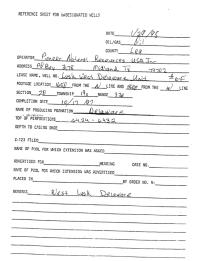 REFERENCE SHEET FOR UNDESIGNATED WELLS
DATE 1/29/98
OIL/GAS Oil
COUNTY Lea
OPERATOR Pioneer Natural Resources USA Inc
ADDRESS Midland TX
LEASE NAME, WELL NO. Lusk West Delaware Unit
FOOTAGE LOCATION FROM THE N LINE AND FROM THE LINE
SECTION TOWNSHIP 19s RANGE 32e
COMPLETION DATE 10/17/97
NAME OF PRODUCING FORMATION Delaware
TOP OF PERFORATIONS 6424 - 6432
DEPTH TO CASING SHOE
C-123 FILED
NAME OF POOL FOR WHICH EXTENSION WAS ASKED
ADVERTISED FOR HEARING CASE NO.
NAME OF POOL FOR WHICH EXTENSION WAS ADVERTISED
PLACED IN BY ORDER NO. R-
REMARKS West Lusk Delaware